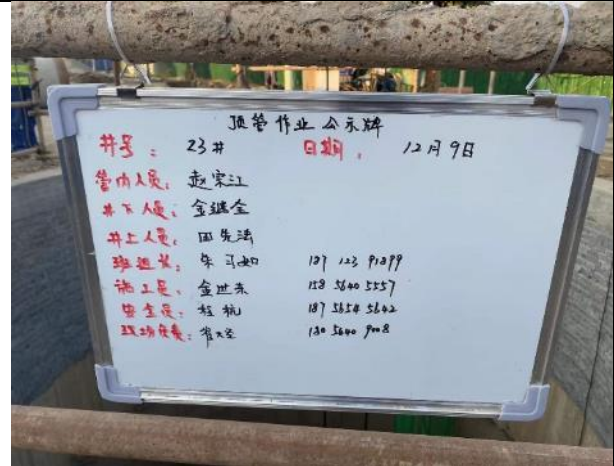 顶管作业公示牌
井号： 23# 日期： 12月9日
管内人员： 赵宗江
井下人员： 金继全
井上人员： 田先涛
班组长： 朱 187 123 91899
施工员： 金世东 158 5640 5557
安全员： 桂杭 187 5654 5642
现场负责： 180 5640 9008